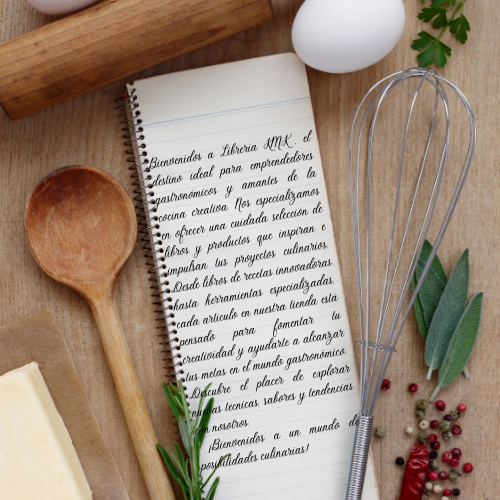 Bienvenidos a Libreria KMK, el
destino ideal para emprendedores
gastronómicos y amantes de la
cocina creativa. Nos especializamos
en ofrecer una cuidada selección de
libros y productos que inspiran e
impulsan tus proyectos culinarios.
Desde libros de recetas innovadoras
hasta herramientas especializadas,
cada artículo en nuestra tienda está
pensado para fomentar tu
creatividad y ayudarte a alcanzar
tus metas en el mundo gastronómico.
Descubre el placer de explorar
nuevas técnicas, sabores y tendencias
con nosotros.
¡Bienvenidos a un mundo de
posibilidades culinarias!